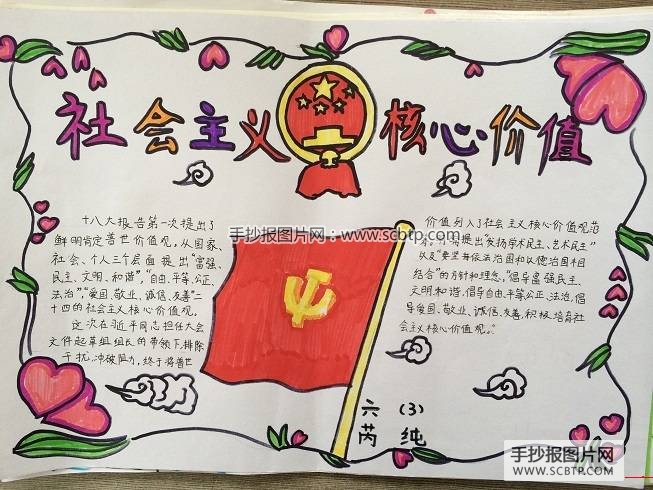 社会主义 核心价值
手抄报图片网 - www.scbtp.com
十八大报告第一次提出了
鲜明肯定普世价值观，从国家
社会、个人三个层面提出“富强、
民主、文明、和谐”，“自由、平等、公正、
法治”，“爱国、敬业、诚信、友善”二
十四的社会主义核心价值观。
这次在习近平同志担任大会
文件起草组组长的带领下，排除
干扰，冲破阻力，终于将普世
价值列入了社会主义核心价值观范
提出“发扬学术民主、艺术民主”
以及“要坚持依法治国和以德治国相
结合”的方针和理念，“倡导富强民主、
文明和谐，倡导自由、平等公正、法治，倡
导爱国、敬业、诚信、友善，积极培育社
会主义核心价值观。”
六 (3)
芮 纯
手抄报图片网
www.SCBTP.COM